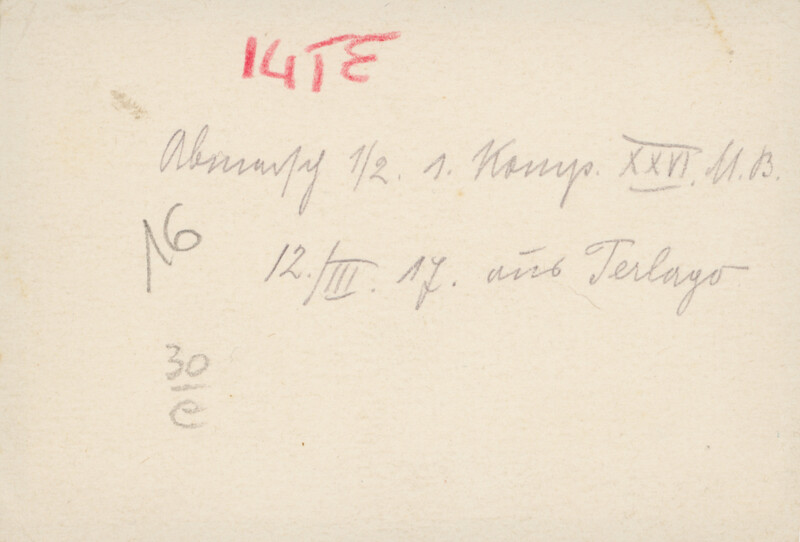 14TE
Abmarsch 1/2. 1. Komp. XXVI. M.B.
16
12./III. 17. aus Terlago
30
C